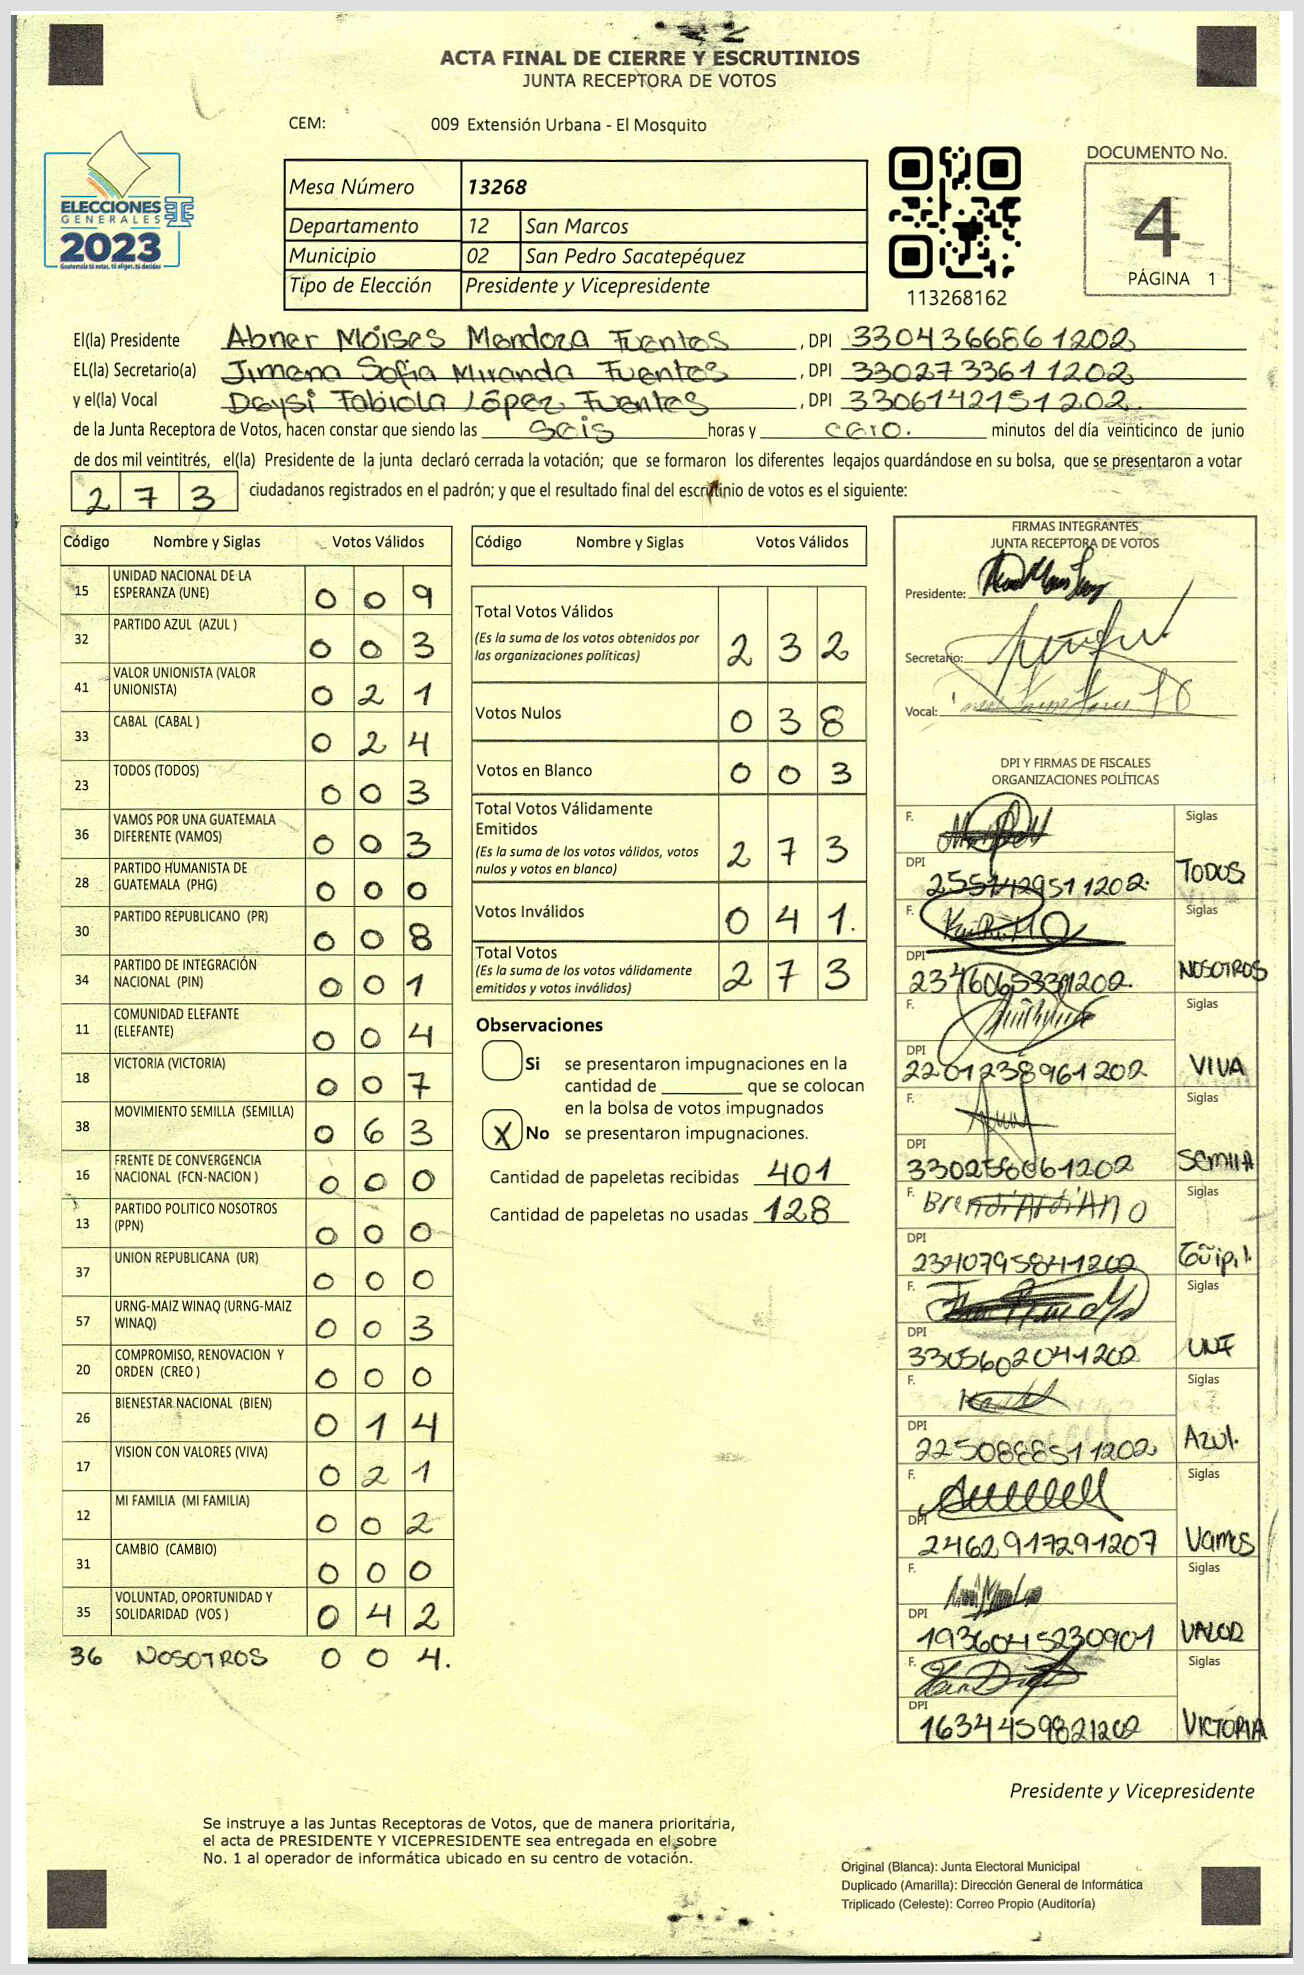 ACTA FINAL DE CIERRE Y ESCRUTINIOS
JUNTA RECEPTORA DE VOTOS
CEM: 009 Extensión Urbana - El Mosquito
ELECCIONES
GENERALES
2023
Guatemala tú votas, tú eliges, tú decides
Mesa Número 13268
Departamento 12 San Marcos
Municipio 02 San Pedro Sacatepéquez
Tipo de Elección Presidente y Vicepresidente
113268162
DOCUMENTO No.
4
PÁGINA 1
El(la) Presidente Abner Moises Mendoza Fuentes, DPI 3304366861202
EL(la) Secretario(a) Jimena Sofia Miranda Fuentes, DPI 3302733611202
y el(la) Vocal Deysi Fabiola López Fuentes, DPI 3306142151202
de la Junta Receptora de Votos, hacen constar que siendo las seis horas y cero. minutos del día veinticinco de junio
de dos mil veintitrés, el(la) Presidente de la junta declaró cerrada la votación; que se formaron los diferentes legajos guardándose en su bolsa, que se presentaron a votar
273 ciudadanos registrados en el padrón; y que el resultado final del escrutinio de votos es el siguiente:
Código Nombre y Siglas Votos Válidos
15 UNIDAD NACIONAL DE LA ESPERANZA (UNE) 0 0 9
32 PARTIDO AZUL (AZUL ) 0 0 3
41 VALOR UNIONISTA (VALOR UNIONISTA) 0 2 1
33 CABAL (CABAL ) 0 2 4
23 TODOS (TODOS) 0 0 3
36 VAMOS POR UNA GUATEMALA DIFERENTE (VAMOS) 0 0 3
28 PARTIDO HUMANISTA DE GUATEMALA (PHG) 0 0 0
30 PARTIDO REPUBLICANO (PR) 0 0 8
34 PARTIDO DE INTEGRACIÓN NACIONAL (PIN) 0 0 1
11 COMUNIDAD ELEFANTE (ELEFANTE) 0 0 4
18 VICTORIA (VICTORIA) 0 0 7
38 MOVIMIENTO SEMILLA (SEMILLA) 0 6 3
16 FRENTE DE CONVERGENCIA NACIONAL (FCN-NACION ) 0 0 0
13 PARTIDO POLITICO NOSOTROS (PPN) 0 0 0
37 UNION REPUBLICANA (UR) 0 0 0
57 URNG-MAIZ WINAQ (URNG-MAIZ WINAQ) 0 0 3
20 COMPROMISO, RENOVACION Y ORDEN (CREO ) 0 0 0
26 BIENESTAR NACIONAL (BIEN) 0 1 4
17 VISION CON VALORES (VIVA) 0 2 1
12 MI FAMILIA (MI FAMILIA) 0 0 2
31 CAMBIO (CAMBIO) 0 0 0
35 VOLUNTAD, OPORTUNIDAD Y SOLIDARIDAD (VOS ) 0 4 2
36 NOSOTROS 0 0 4.
Código Nombre y Siglas Votos Válidos
Total Votos Válidos 2 3 2
(Es la suma de los votos obtenidos por
las organizaciones políticas)
Votos Nulos 0 3 8
Votos en Blanco 0 0 3
Total Votos Válidamente
Emitidos 2 7 3
(Es la suma de los votos válidos, votos
nulos y votos en blanco)
Votos Inválidos 0 4 1.
Total Votos 2 7 3
(Es la suma de los votos válidamente
emitidos y votos inválidos)
Observaciones
Si se presentaron impugnaciones en la
cantidad de ________ que se colocan
en la bolsa de votos impugnados
X No se presentaron impugnaciones.
Cantidad de papeletas recibidas 401
Cantidad de papeletas no usadas 128
FIRMAS INTEGRANTES
JUNTA RECEPTORA DE VOTOS
Presidente:
Secretario:
Vocal:
DPI Y FIRMAS DE FISCALES
ORGANIZACIONES POLÍTICAS
F. Siglas
DPI TODOS
F. Siglas
DPI NOSOTROS
F. Siglas
DPI 2201238961202 VIVA
F. Siglas
DPI SEMILLA
F. Siglas
DPI 23210795841202
F. Siglas
DPI 3305602041202 UNE
F. Siglas
DPI 2250888511202 Azul.
F. Siglas
DPI 2462917291207 Vamos
F. Siglas
DPI 1936045230901 VALOR
F. Siglas
DPI 1634459821202 VICTORIA
Presidente y Vicepresidente
Se instruye a las Juntas Receptoras de Votos, que de manera prioritaria,
el acta de PRESIDENTE Y VICEPRESIDENTE sea entregada en el sobre
No. 1 al operador de informática ubicado en su centro de votación.
Original (Blanca): Junta Electoral Municipal
Duplicado (Amarilla): Dirección General de Informática
Triplicado (Celeste): Correo Propio (Auditoría)